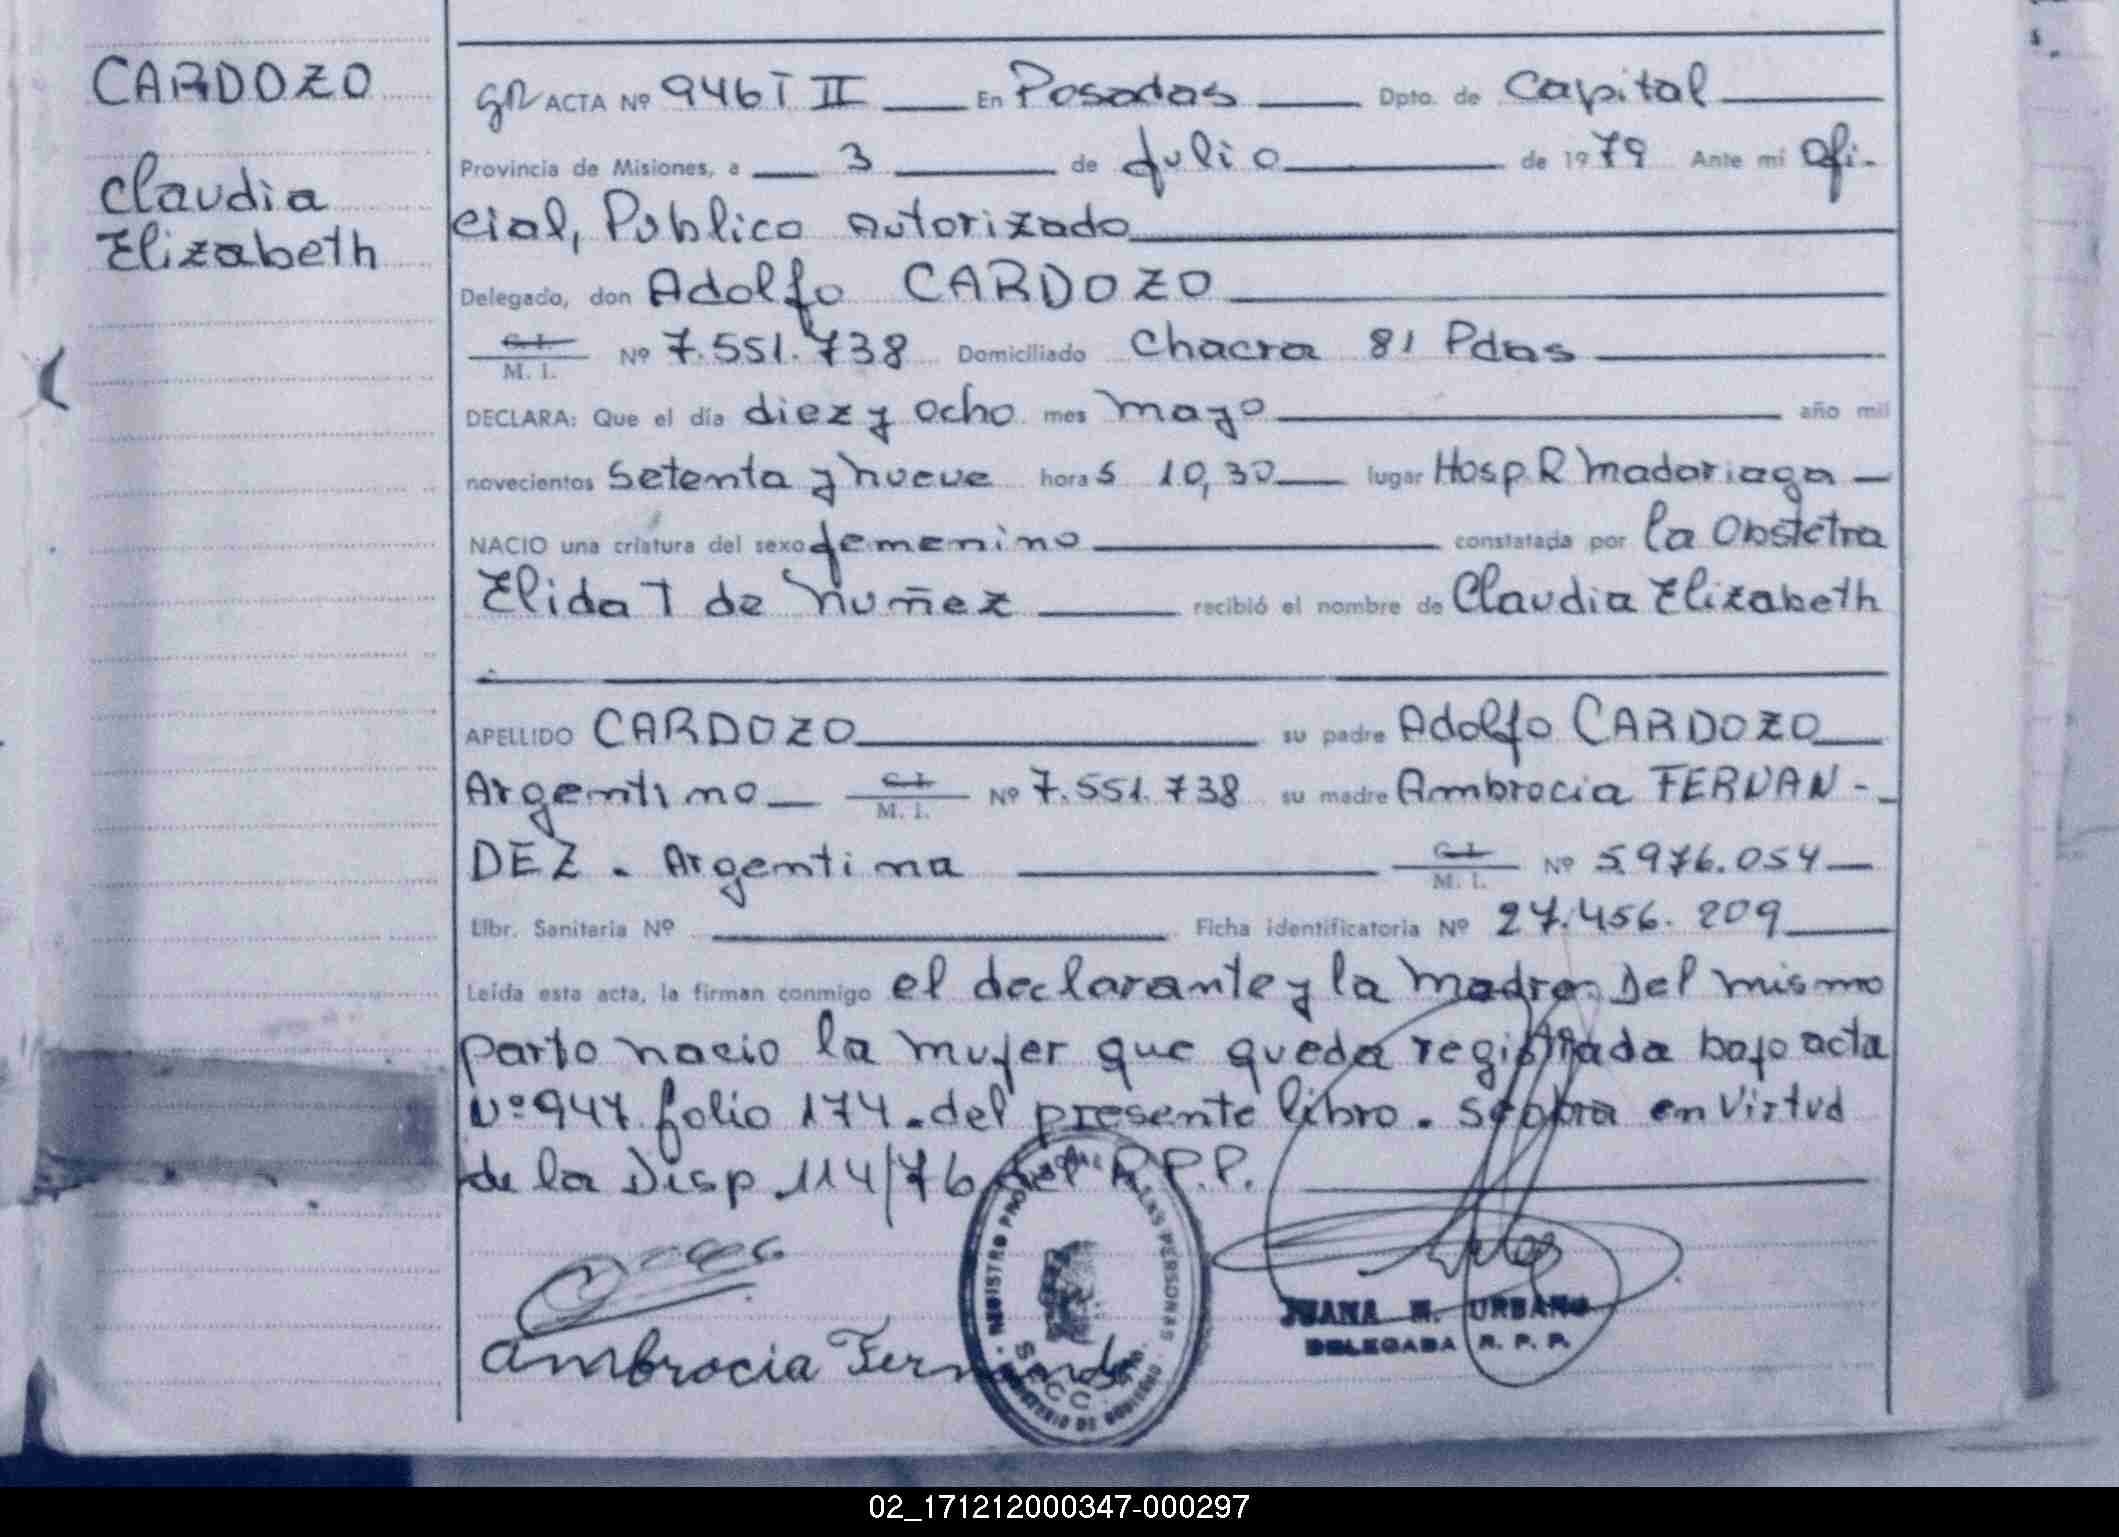 CARDOZO
Claudia
Elizabeth
GR ACTA Nº 946 T II En Posadas Dpto. de Capital
Provincia de Misiones, a 3 de Julio de 1979 Ante mí Ofi-
cial, Público Autorizado
Delegado, don Adolfo CARDOZO
C. I.
M. I. Nº 7.551.738 Domiciliado Chacra 81 Pdas
DECLARA: Que el día diez y ocho mes mayo año mil
novecientos setenta y nueve horas 10,30 lugar Hosp. R Madariaga
NACIO una criatura del sexo femenino constatada por la Obstetra
Elida T de Nuñez recibió el nombre de Claudia Elizabeth
APELLIDO CARDOZO su padre Adolfo CARDOZO
Argentino C. I. M. I. Nº 7.551.738 su madre Ambrocia FERNAN-
DEZ. Argentina C. I. M. I. Nº 5.976.054
Libr. Sanitaria Nº Ficha identificatoria Nº 27.456.209
Leída esta acta, la firman conmigo el declarante y la madre. Del mismo
parto nacio la mujer que queda registrada bajo acta
Nº 947 folio 174. del presente libro. Se obra en virtud
de la Disp 114/76 del R.P.P.
Ambrocia Fernande
REGISTRO PROVINCIAL DE LAS PERSONAS
MINISTERIO DE GOBIERNO
JUANA N. URBANO
DELEGADA R. P. P.
02_171212000347-000297